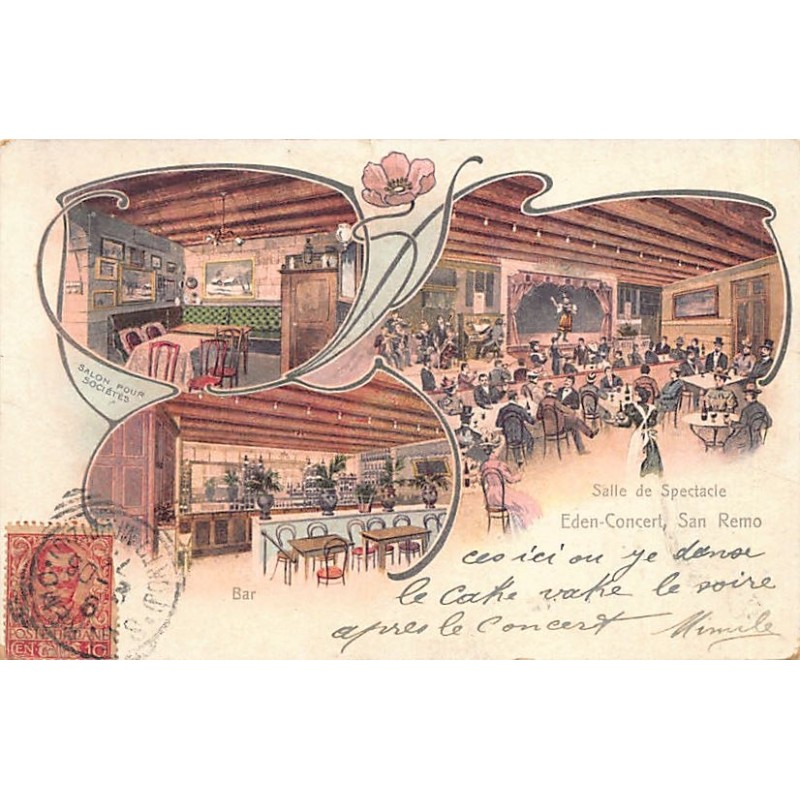 SALON POUR
SOCIÉTÉS
Salle de Spectacle
Eden-Concert, San Remo
Bar
ces ici ou ye danse
le Cake vake le soire
apres le concert Mimile
POSTE ITALIANE
CENT. 10